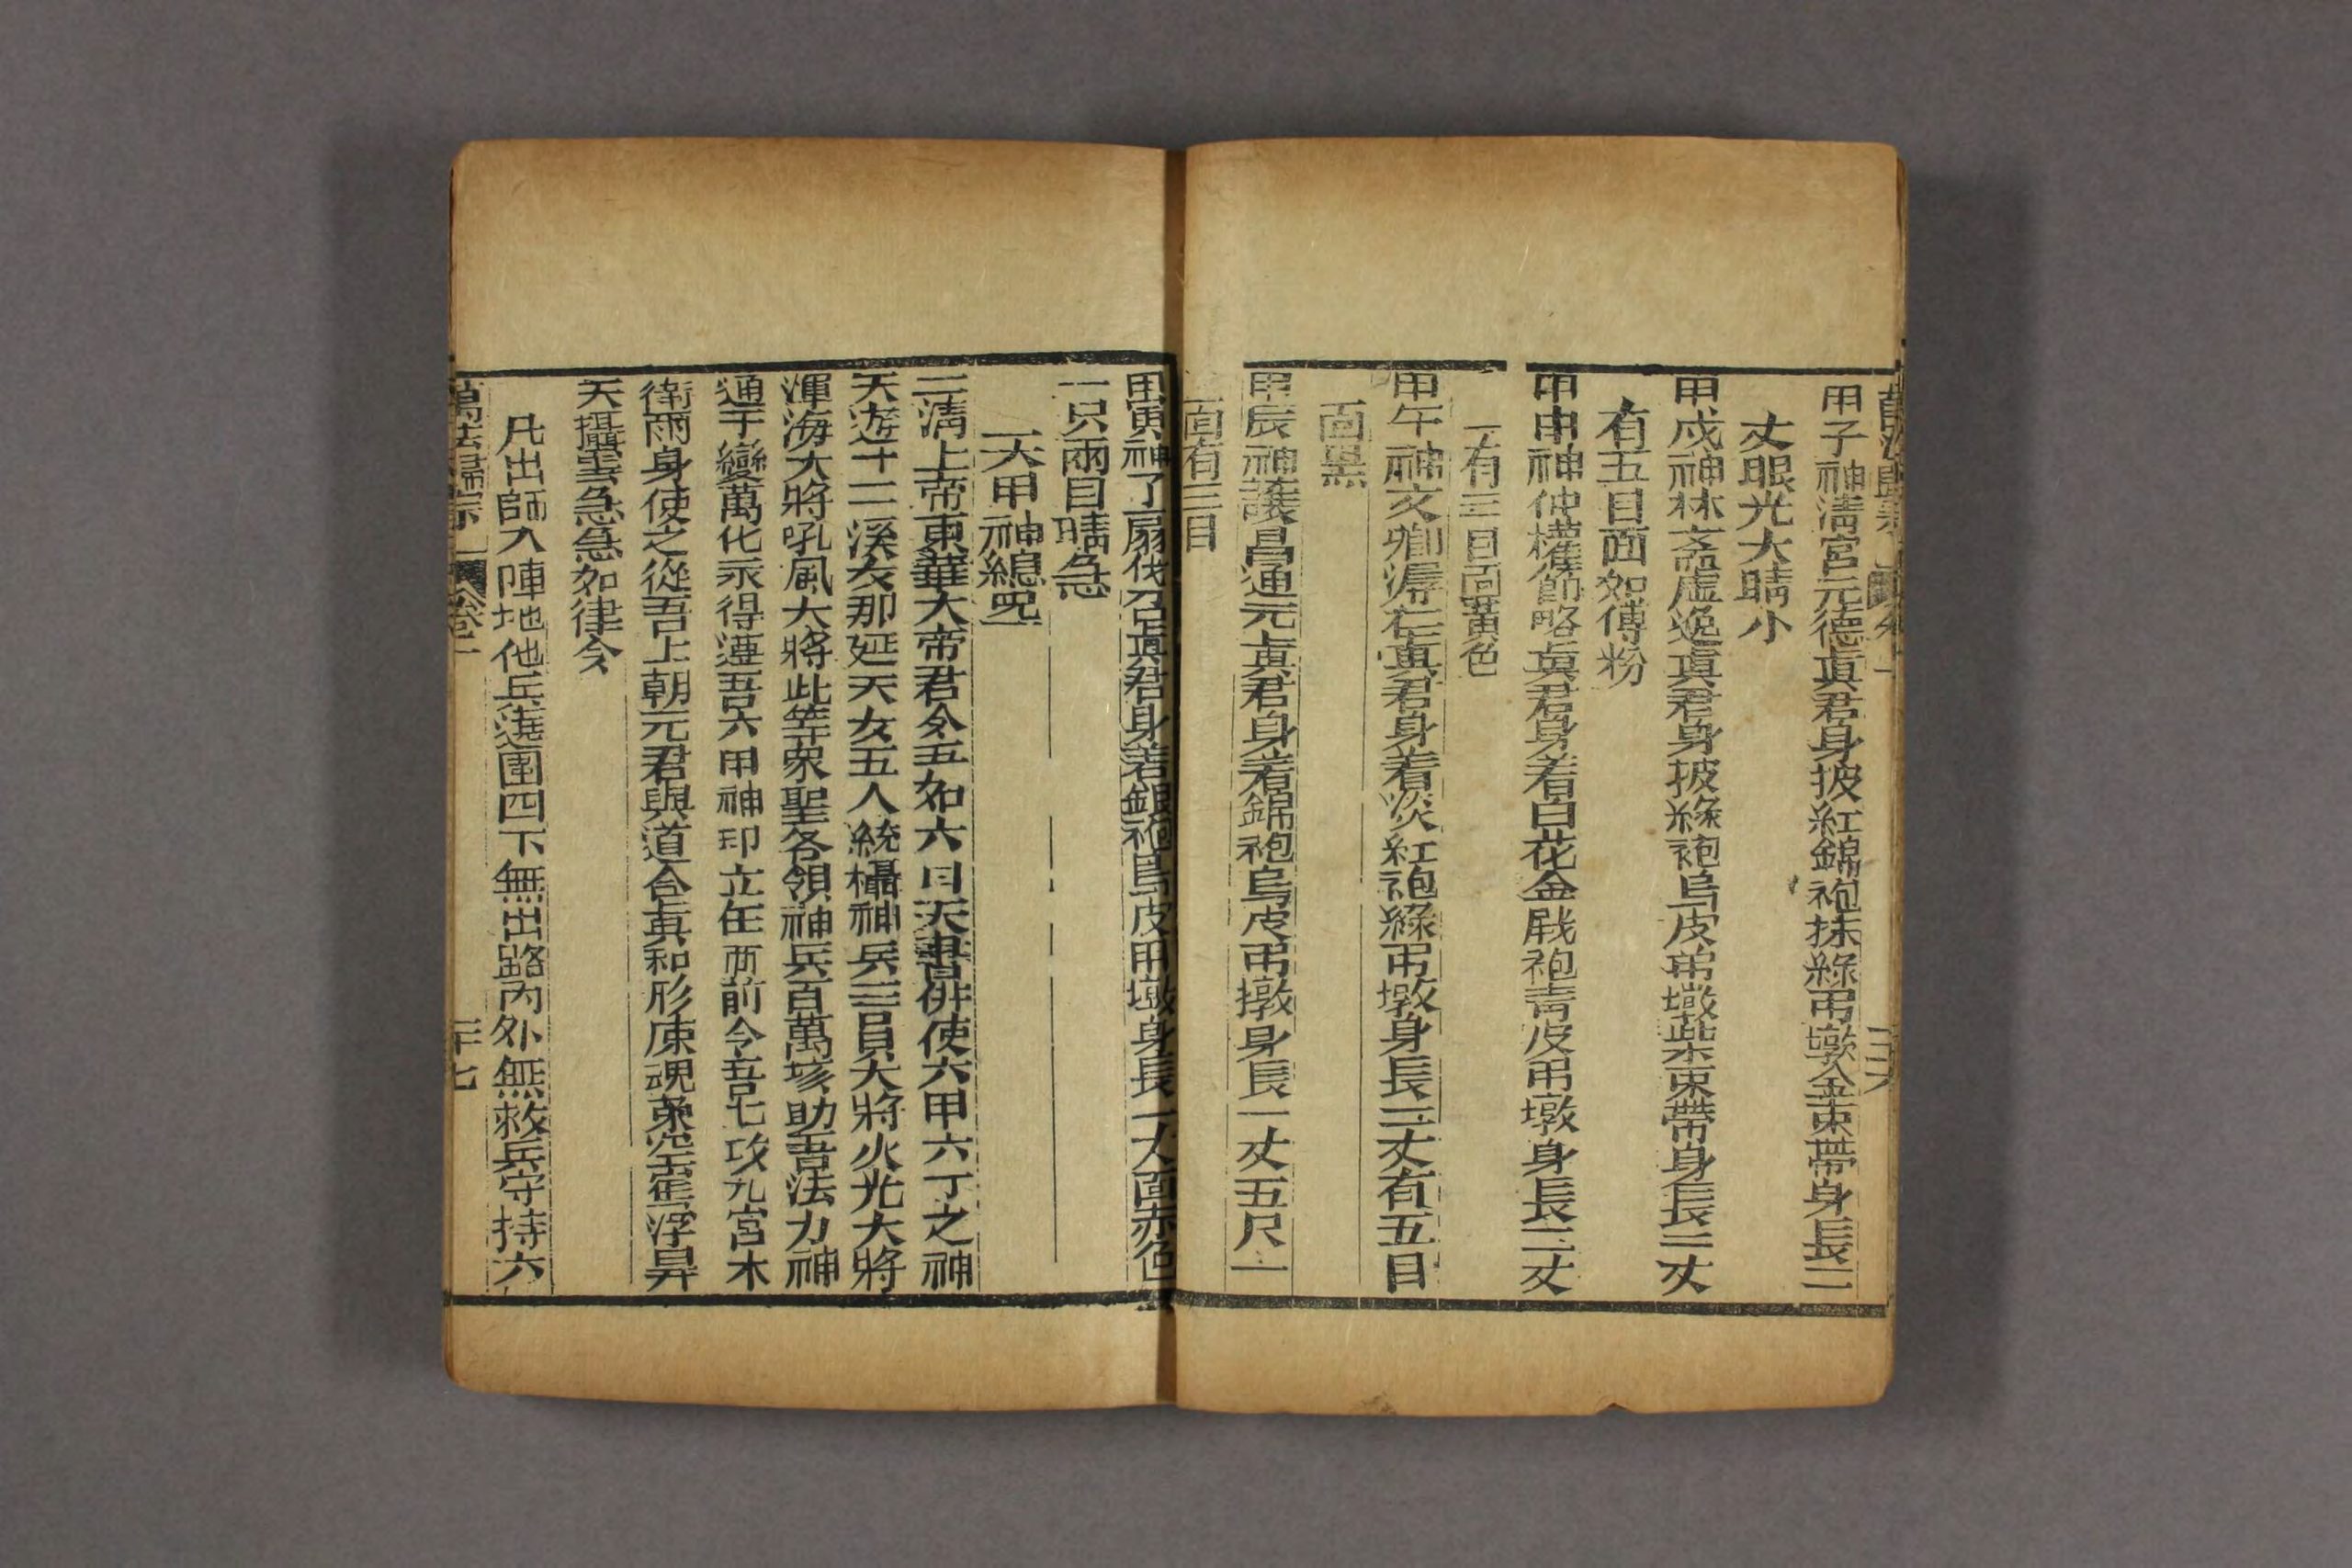 甲子神淸宮元德眞君身披紅錦袍抹綠弔墩金束帶身長二
丈眼光大睛小
甲戌神林齋虛逸眞君身披綠袍烏皮弔墩紫束帶身長二丈
有五目面如傅粉
甲申神仲權節略眞君身着白花金戰袍靑皮弔墩身長二丈
一有三目面黃色
甲午神文卿潺仁眞君身着淡紅袍綠弔墩身長三丈有五目
面黑
甲辰神讓昌通元眞君身着錦袍烏皮弔撴身長一丈五尺一
面有三目
甲寅神了扇伐召眞君身着銀袍烏皮弔墩身長一丈面赤色
一只兩目睛急
一大甲神總咒
三淸上帝東華大帝君令五如六日天書併使六甲六丁之神
天遊十二溪女那延天女五人統攝神兵三員大將火光大將
渾海大將吼風大將此等衆聖各領神兵百萬垓助吾法力神
通千變萬化永得遵吾六甲神印立在面前令吾七攻九宮木
衛雨身使之從吾上朝元君與道合眞和形凍魂乘空雲浮昇
天攝雲急急如律令
凡出師入陣地他兵遶圍四下無出路內外無救兵守持六
萬法歸宗 卷二 二十七